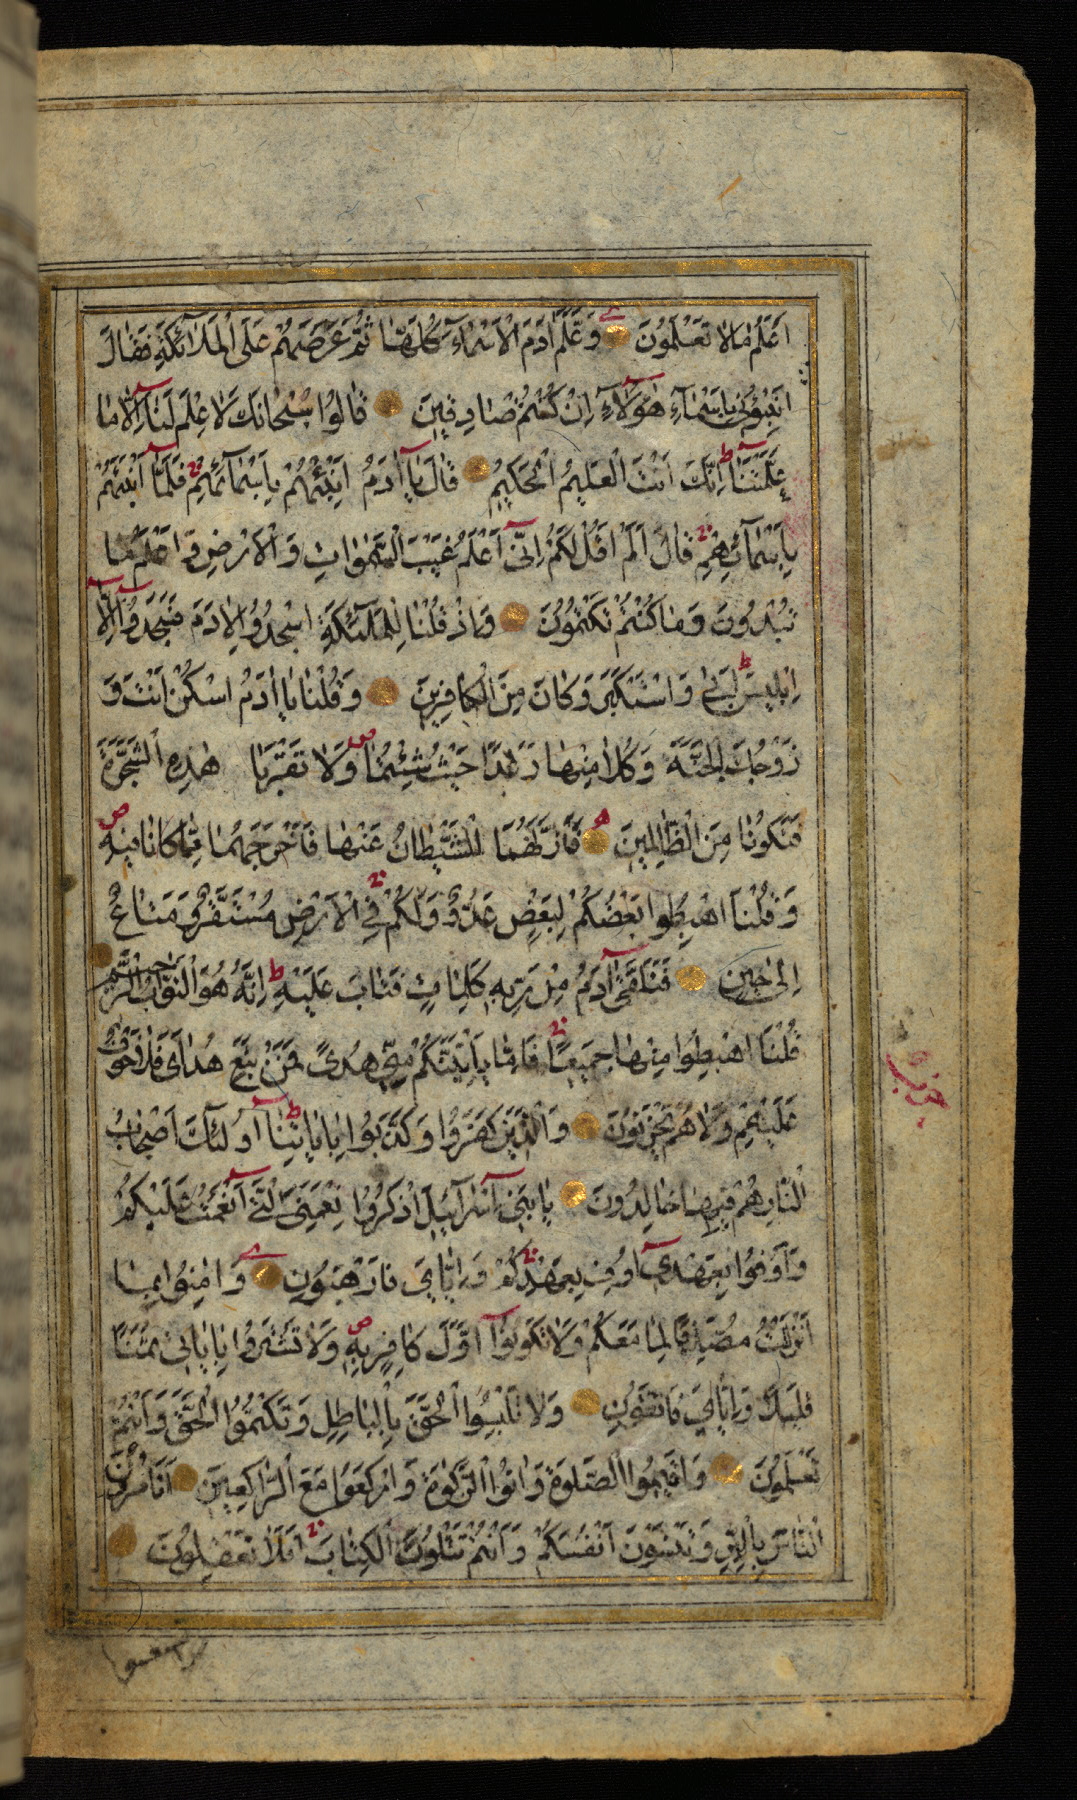 اَعْلَمُ مٰا لٰا تَعْلَمُونَ وَعَلَّمَ اٰدَمَ الْاَسْمٰاءَ كُلَّهٰا ثُمَّ عَرَضَهُمْ عَلَى الْمَلٰائِكَةِ فَقٰالَ
اَنْبِؤُنِى بِاَسْمٰاءِ هٰؤُلٰاءِ اِنْ كُنْتُمْ صٰادِقِينَ قٰالُوا سُبْحٰانَكَ لٰا عِلْمَ لَنٰا اِلّٰا مٰا
عَلَّمْتَنٰا اِنَّكَ اَنْتَ الْعَلِيمُ الْحَكِيمُ قٰالَ يٰا اٰدَمُ اَنْبِئْهُمْ بِاَسْمٰائِهِمْ فَلَمّٰا اَنْبَئَهُمْ
بِاَسْمٰائِهِمْ قٰالَ اَلَمْ اَقُلْ لَكُمْ اِنِّى اَعْلَمُ غَيْبَ السَّمٰوٰاتِ وَالْاَرْضِ وَاَعْلَمُ مٰا
تُبْدُونَ وَمٰا كُنْتُمْ تَكْتُمُونَ وَاِذْ قُلْنٰا لِلْمَلٰئِكَةِ اسْجُدُوا لِاٰدَمَ فَسَجَدُوا اِلّٰا
اِبْلِيسَ اَبىٰ وَاسْتَكْبَرَ وَكٰانَ مِنَ الْكٰافِرِينَ وَقُلْنٰا يٰا اٰدَمُ اسْكُنْ اَنْتَ وَ
زَوْجُكَ الْجَنَّةَ وَكُلٰا مِنْهٰا رَغَدًا حَيْثُ شِئْتُمٰا وَلٰا تَقْرَبٰا هٰذِهِ الشَّجَرَةَ
فَتَكُونٰا مِنَ الظّٰالِمِينَ فَاَزَلَّهُمَا الشَّيْطٰانُ عَنْهٰا فَاَخْرَجَهُمٰا مِمّٰا كٰانٰا فِيهِ
وَقُلْنَا اهْبِطُوا بَعْضُكُمْ لِبَعْضٍ عَدُوٌّ وَلَكُمْ فِى الْاَرْضِ مُسْتَقَرٌّ وَمَتٰاعٌ
اِلىٰ حِينٍ فَتَلَقّٰى اٰدَمُ مِنْ رَبِّهِ كَلِمٰاتٍ فَتٰابَ عَلَيْهِ اِنَّهُ هُوَ التَّوّٰابُ الرَّحِيمُ
قُلْنَا اهْبِطُوا مِنْهٰا جَمِيعًا فَاِمّٰا يَاْتِيَنَّكُمْ مِنِّى هُدىً فَمَنْ تَبِعَ هُدٰاىَ فَلٰا خَوْفٌ
عَلَيْهِمْ وَلٰا هُمْ يَحْزَنُونَ وَالَّذِينَ كَفَرُوا وَكَذَّبُوا بِاٰيٰاتِنٰا اُولٰئِكَ اَصْحٰابُ
النّٰارِ هُمْ فِيهٰا خٰالِدُونَ يٰا بَنِى اِسْرٰائِيلَ اذْكُرُوا نِعْمَتِىَ الَّتِى اَنْعَمْتُ عَلَيْكُمْ
وَاَوْفُوا بِعَهْدِى اُوفِ بِعَهْدِكُمْ وَاِيّٰاىَ فَارْهَبُونِ وَاٰمِنُوا بِمٰا
اَنْزَلْتُ مُصَدِّقًا لِمٰا مَعَكُمْ وَلٰا تَكُونُوا اَوَّلَ كٰافِرٍ بِهِ وَلٰا تَشْتَرُوا بِاٰيٰاتِى ثَمَنًا
قَلِيلًا وَاِيّٰاىَ فَاتَّقُونِ وَلٰا تَلْبِسُوا الْحَقَّ بِالْبٰاطِلِ وَتَكْتُمُوا الْحَقَّ وَاَنْتُمْ
تَعْلَمُونَ وَاَقِيمُوا الصَّلٰوةَ وَاٰتُوا الزَّكٰوةَ وَارْكَعُوا مَعَ الرّٰاكِعِينَ اَتَاْمُرُونَ
النّٰاسَ بِالْبِرِّ وَتَنْسَوْنَ اَنْفُسَكُمْ وَاَنْتُمْ تَتْلُونَ الْكِتٰابَ اَفَلٰا تَعْقِلُونَ
حزب